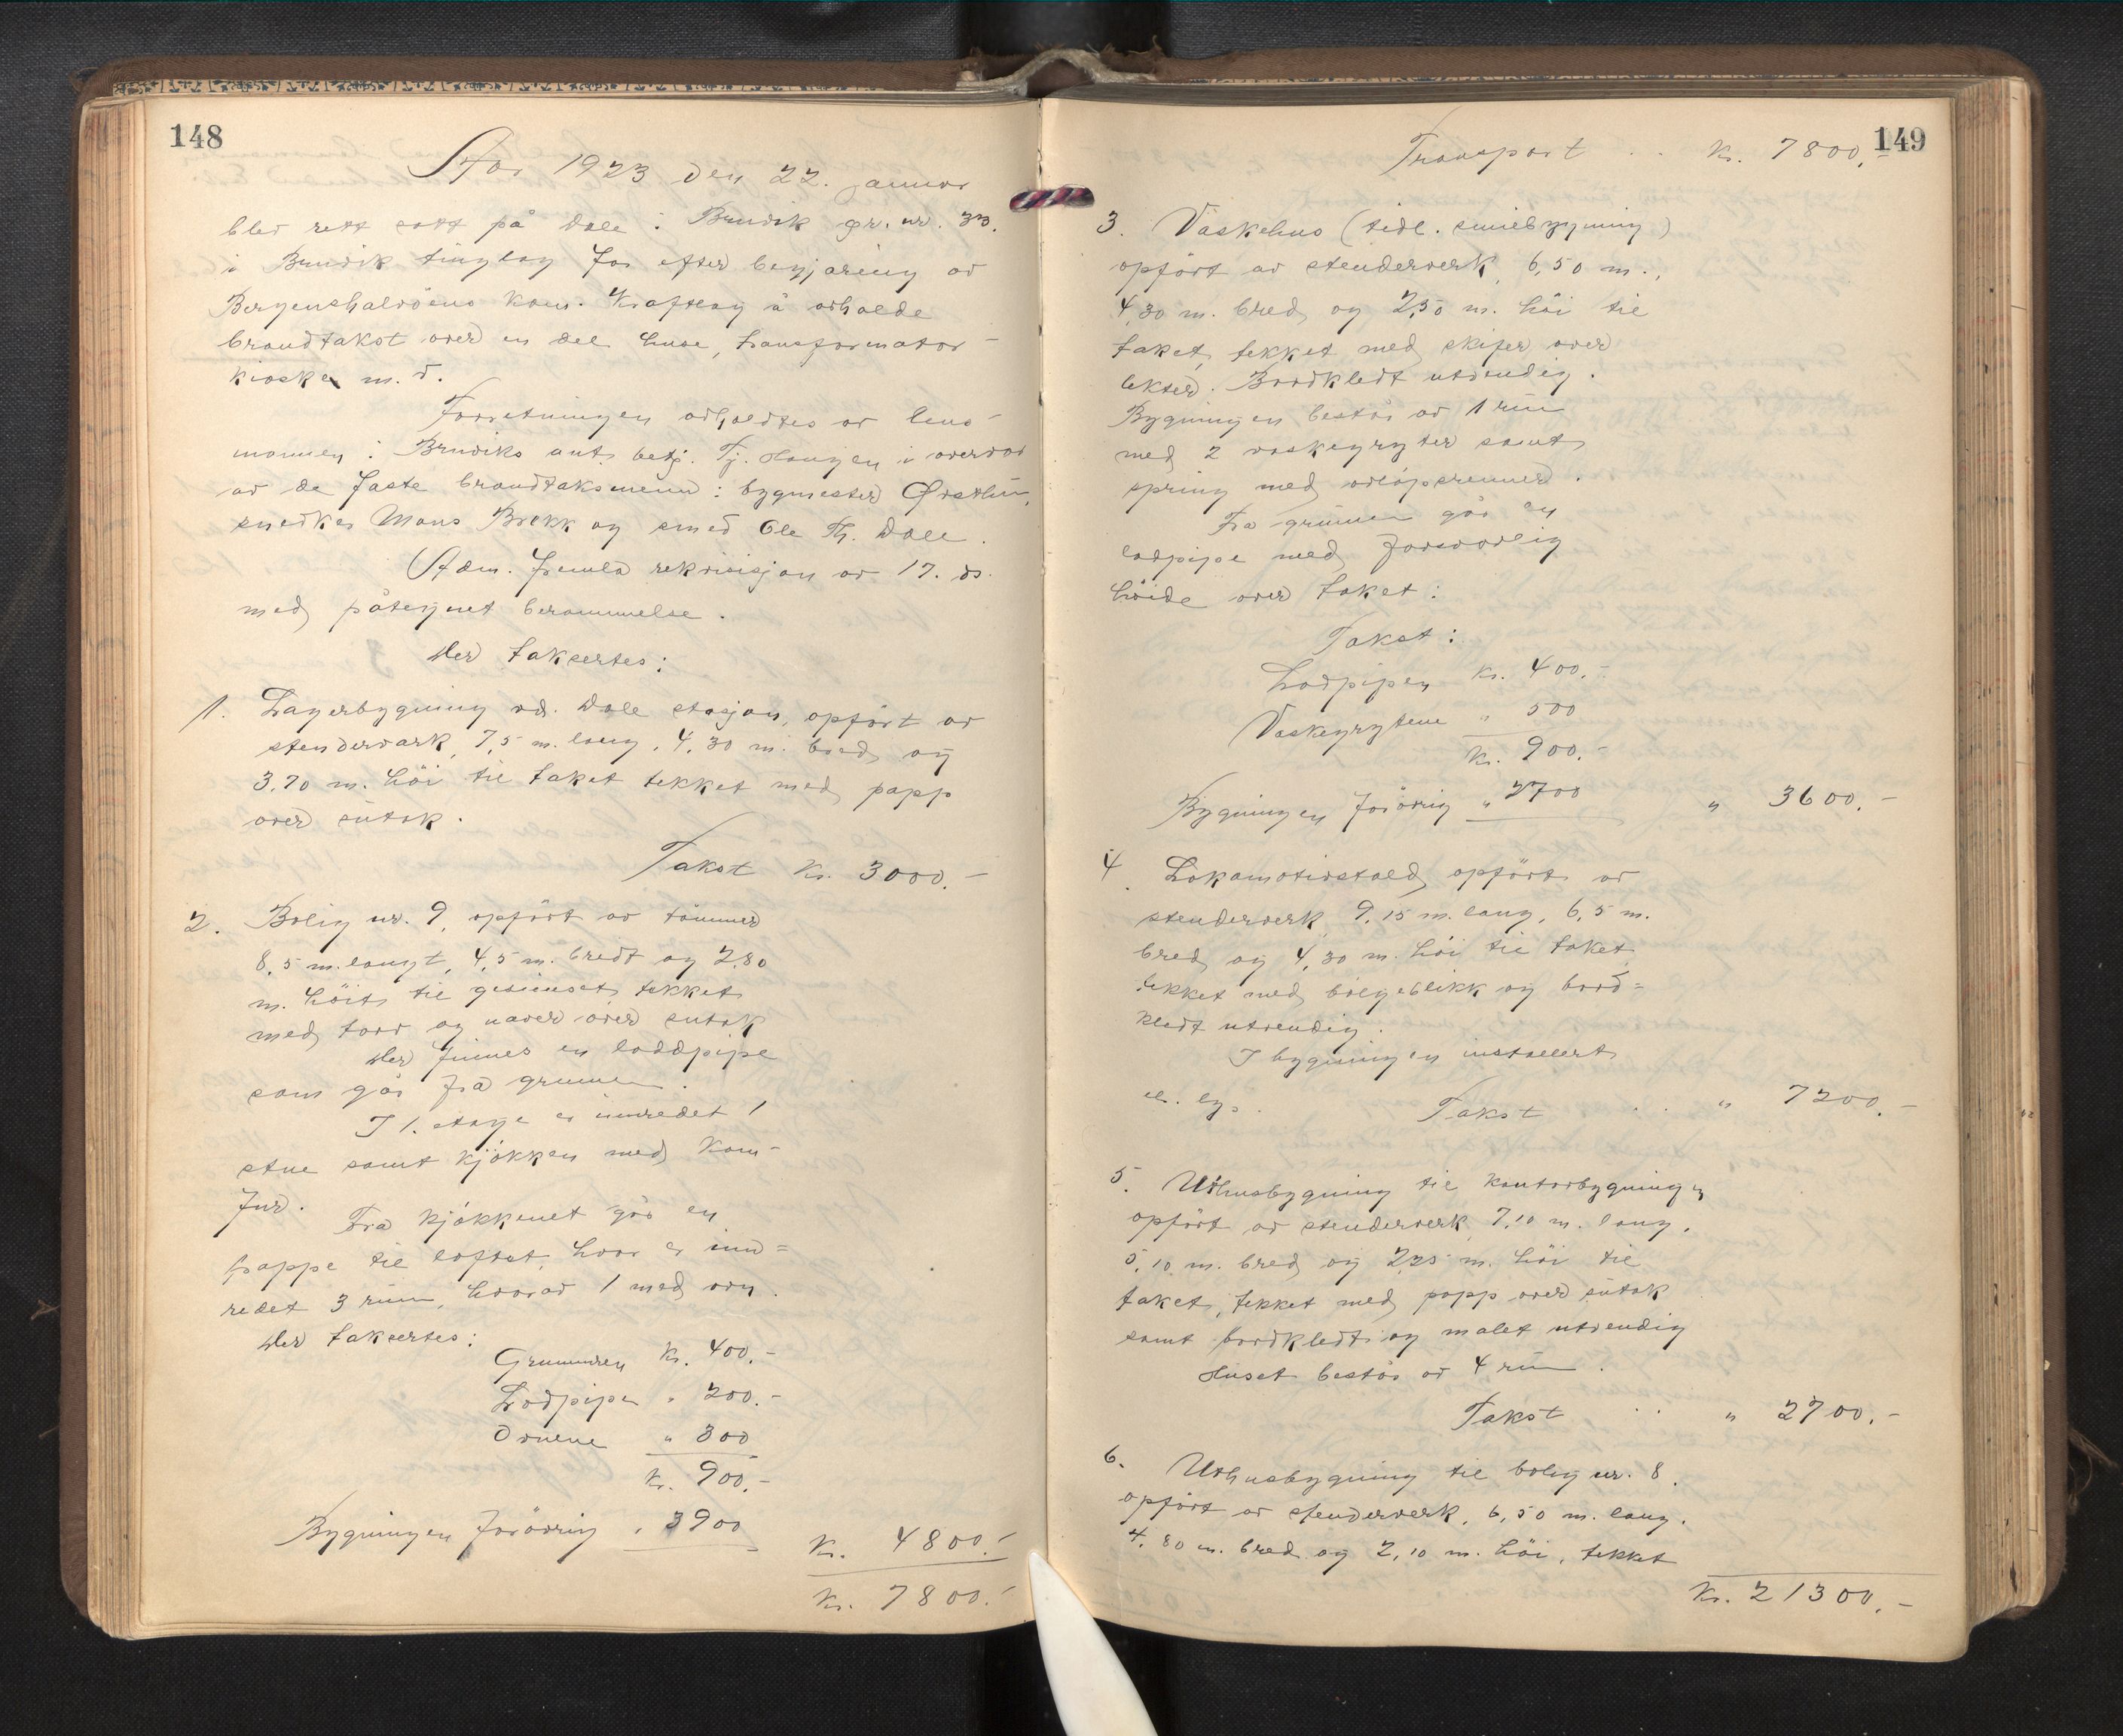 148
År 1923 den 22. januar
blev rett satt på Dale i Bruvik gr. nr. 33.
i Bruvik tinglag for efter begjæring av
Bergenshalvöens kom. Kraftlag å avholde
brandtakst over en del huse, transformator-
kiosker m. v.
Forretningen avholdtes av lens-
mannen i Bruviks aut. betj. Tj. Haugen i overvær
av de faste brandtaksmenn: bygmester
snedker Mons Brekk og smed Ole Th. Dale.
Adm. fremla rekvisisjon av 17. ds.
med påtegnet berammelse.
Der taksertes:
1. Lagerbygning ved Dale stasjon, opfört av
stenderverk, 7,5 m. lang, 4,30 m. bred og
3,70 m. höi til taket tekket med papp
over sutak.
Takst Kr. 3000.-
2. Bolig nr. 9, opfört av tömmer
8,5 m. langt, 4,5 m. bredt og 2,80
m. höit til gesimset, tekket
med torv og never over sutak
Der finnes en loddpipe
som går fra grunnen.
I 1. etage er innredet 1
stue samt kjökken med kom-
fur.
Fra kjökkenet går en
trappe til loftet, hvor er inn=
redet 3 rum, hvorav 1 med ovn.
Der taksertes:
Grunnmuren Kr. 400.-
Lodpipe " 200.-
Ovnene " 300
Kr. 900.-
Bygningen forövrig " 3900
Kr. 4800.-
Kr. 7800.-
149
Transport . . Kr. 7800.-
3. Vaskehus (tidl. smiebygning)
opfört av stenderverk, 6,50 m.,
4,30 m. bred og 2,50 m. höi til
taket, tekket med skifer over
lekter. Bordkledt utvendig.
Bygningen består av 1 rum
med 2 vaskegryter samt
spring med avlöpsrenner.
Fra grunnen går en
lodpipe med forsvarlig
höide over taket:
Takst:
Lodpipen Kr. 400.-
Vaskegrytene " 500
Kr. 900.-
Bygningen forövrig " 2700 " 3600.-
4. Lokomotivstald, opfört av
stenderverk, 9,15 m. lang, 6,5 m.
bred og 4,30 m. höi til taket
tekket med bölgeblikk og bord=
kledt utvendig.
I bygningen installert
el. lys. Takst . . " 7200.-
5. Uthusbygning til kontorbygningen
opfört av stenderverk, 7,10 m. lang,
5,10 m. bred og 2,25 m. höi til
taket, tekket med papp over sutak
samt bordkledt og malet utvendig
Huset består av 4 rum.
Takst . . " 2700.-
6. Uthusbygning til bolig nr. 8.
opfört av stenderverk, 6,50 m. lang,
4,80 m. bred og 2,10 m. höi, tekket
Kr. 21300.-